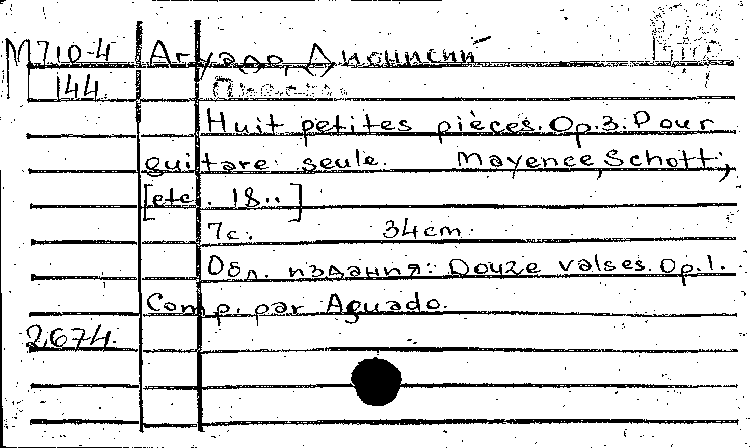 М710-4 Агуадо, Дионисий
144
Huit petites pièces. Op.3. Pour
guitare seule. Mayence, Schott;
[etc. 18..]
7с. 34cm.
Обл. издания: Douze valses. Op.1.
Comp. par Aguado.
2674.